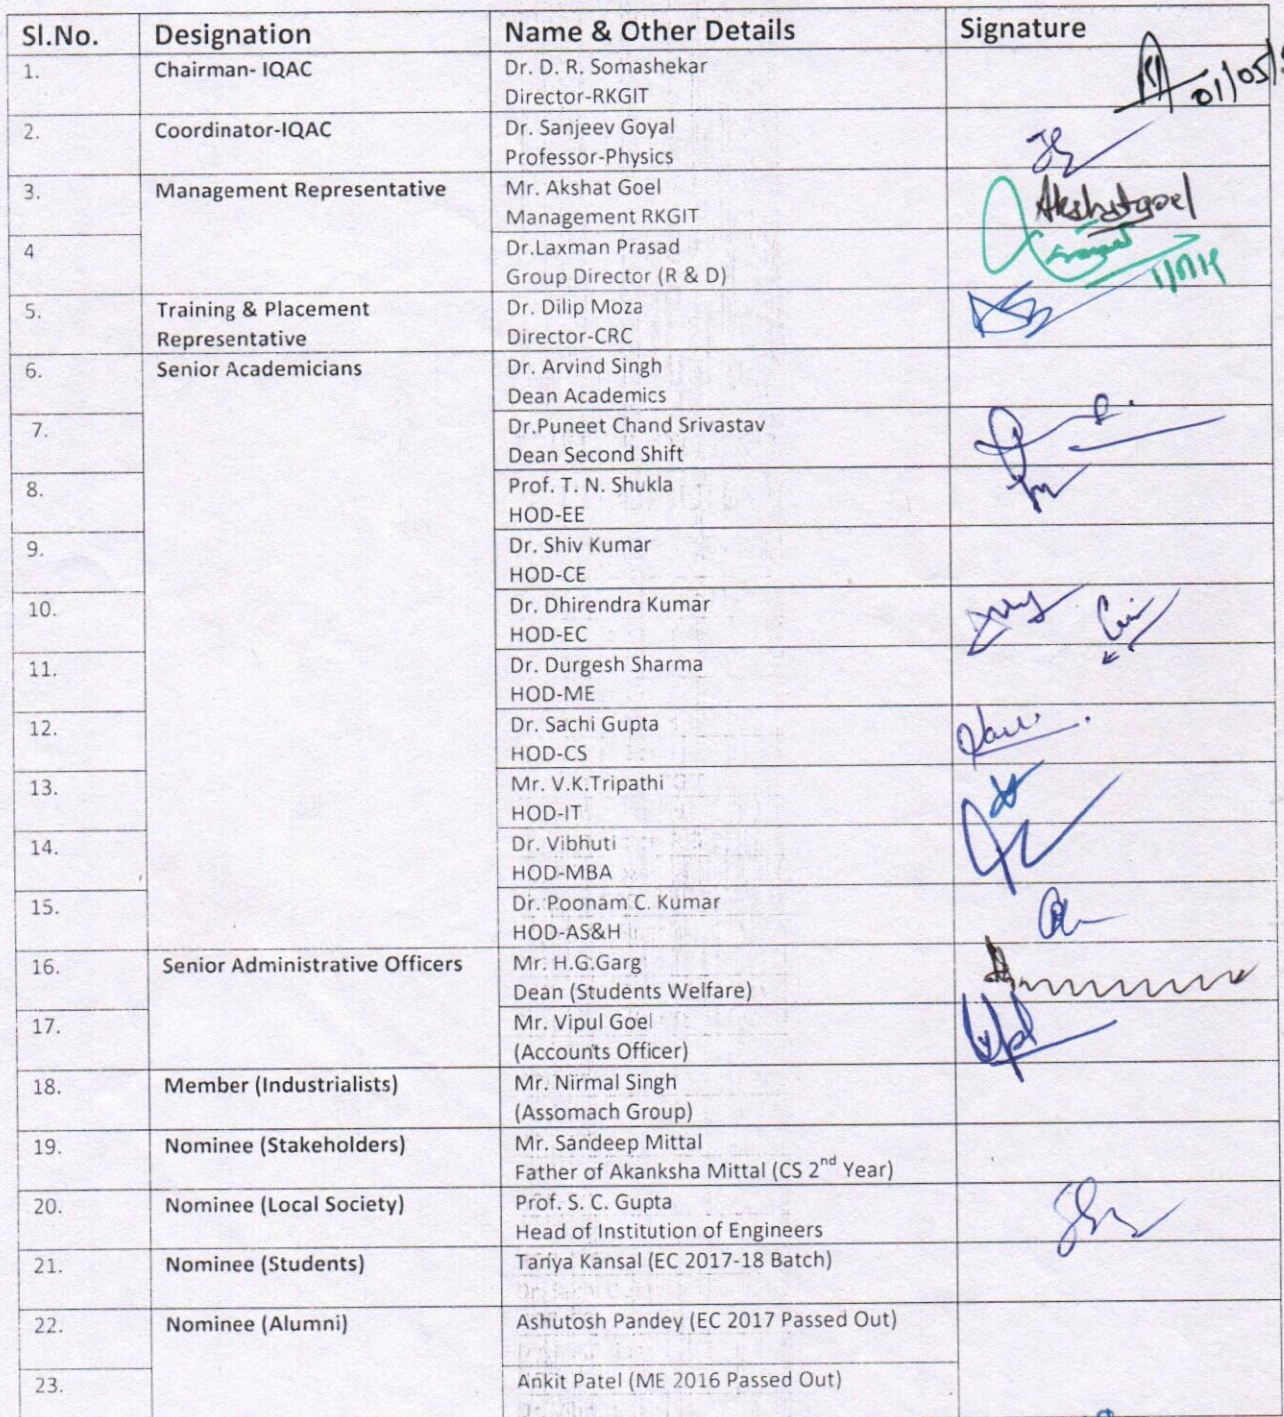 Sl.No. Designation Name & Other Details Signature
1. Chairman- IQAC Dr. D. R. Somashekar
Director-RKGIT
01/05/
2. Coordinator-IQAC Dr. Sanjeev Goyal
Professor-Physics
3. Management Representative Mr. Akshat Goel Akshatgoel
Management RKGIT
4 Dr.Laxman Prasad
Group Director (R & D)
5. Training & Placement Dr. Dilip Moza
Representative Director-CRC
6. Senior Academicians Dr. Arvind Singh
Dean Academics
7. Dr.Puneet Chand Srivastav
Dean Second Shift
8. Prof. T. N. Shukla
HOD-EE
9. Dr. Shiv Kumar
HOD-CE
10. Dr. Dhirendra Kumar
HOD-EC
11. Dr. Durgesh Sharma
HOD-ME
12. Dr. Sachi Gupta
HOD-CS
13. Mr. V.K.Tripathi
HOD-IT
14. Dr. Vibhuti
HOD-MBA
15. Dr. Poonam C. Kumar
HOD-AS&H
16. Senior Administrative Officers Mr. H.G.Garg
Dean (Students Welfare)
17. Mr. Vipul Goel
(Accounts Officer)
18. Member (Industrialists) Mr. Nirmal Singh
(Assomach Group)
19. Nominee (Stakeholders) Mr. Sandeep Mittal
Father of Akanksha Mittal (CS 2nd Year)
20. Nominee (Local Society) Prof. S. C. Gupta
Head of Institution of Engineers
21. Nominee (Students) Tanya Kansal (EC 2017-18 Batch)
22. Nominee (Alumni) Ashutosh Pandey (EC 2017 Passed Out)
23. Ankit Patel (ME 2016 Passed Out)